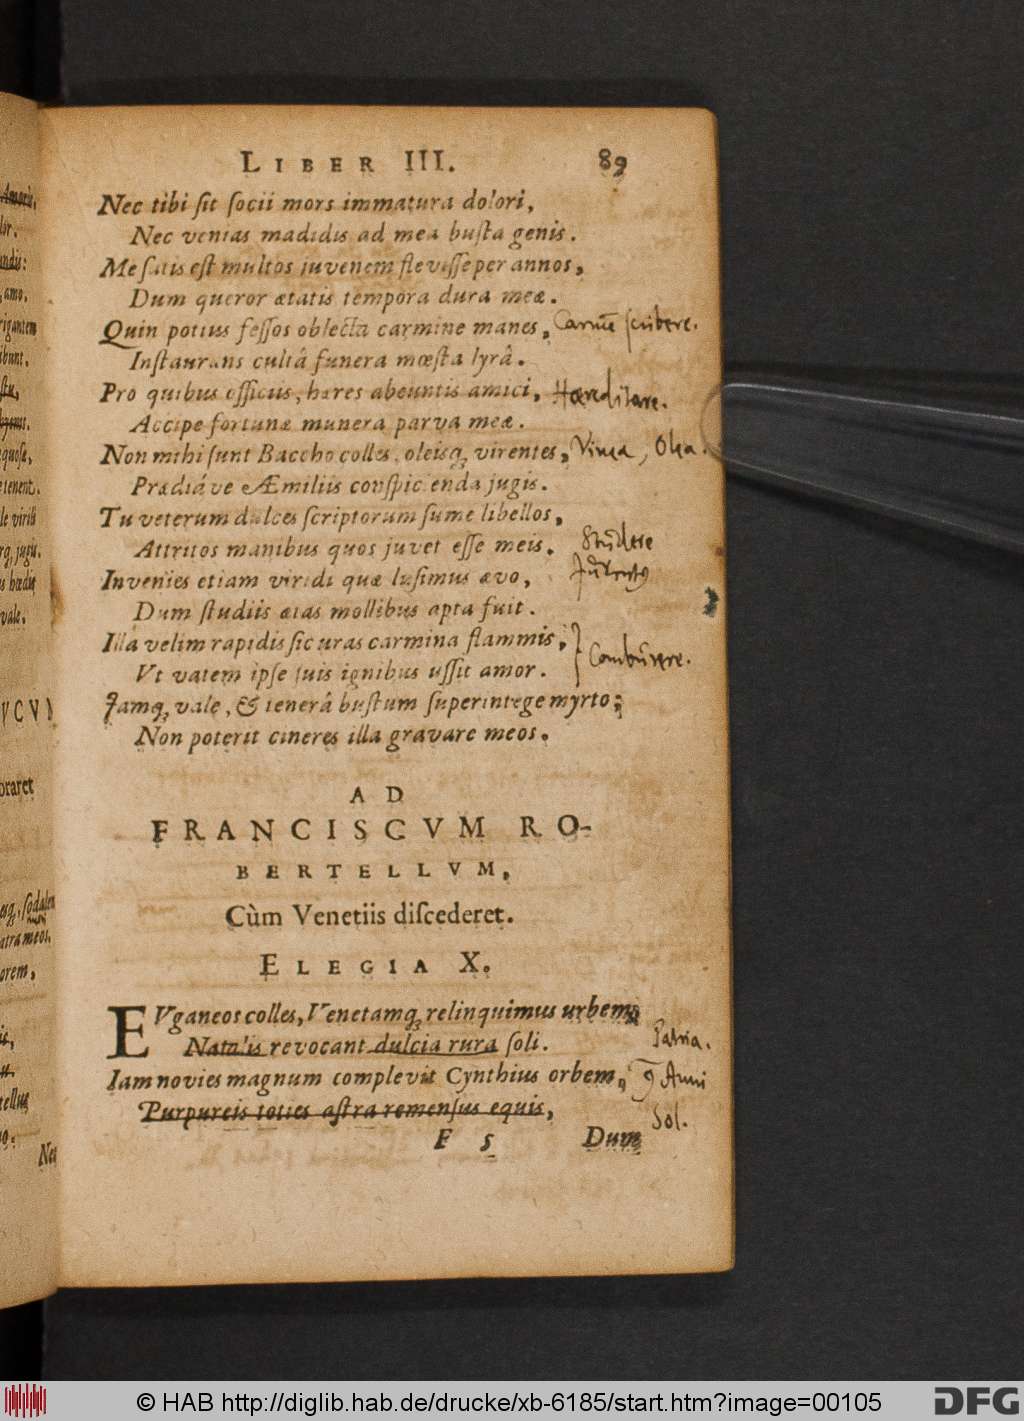 LIBER III. 89
Nec tibi ſit ſocii mors immatura dolori,
Nec venias madidis ad mea buſta genis.
Me ſatis eſt multos juvenem fleviſſe per annos,
Dum queror ætatis tempora dura meæ.
Quin potius feſſos oblecta carmine manes, Carmē ſcribere.
Inſtaurans cultâ funera mœſta lyrâ.
Pro quibus officiis, hæres abeuntis amici, Hæreditare.
Accipe fortunæ munera parva meæ.
Non mihi ſunt Baccho colles, oleisq; virentes, Vinea, Olea.
Prædiáve Æmiliis conſpicienda jugis.
Tu veterum dulces ſcriptorum ſume libellos,
Attritos manibus quos juvet eſſe meis. Studere
Invenies etiam viridi quæ luſimus ævo,
Dum ſtudiis ætas mollibus apta fuit.
Illa velim rapidis ſic uras carmina flammis,
Vt vatem ipſe ſuis ignibus uſſit amor. Comburere.
Jamq; vale, & tenerâ buſtum ſuperintege myrto;
Non poterit cineres illa gravare meos.
AD
FRANCISCVM RO-
BERTELLVM,
Cùm Venetiis diſcederet.
ELEGIA X.
EVganeos colles, Venetamq; relinquimus urbem,
Natalis revocant dulcia rura ſoli. Patria.
Iam novies magnum complevit Cynthius orbem, 9 Anni
Purpureis toties aſtra remenſus equis, Sol.
F 5 Dum
© HAB http://diglib.hab.de/drucke/xb-6185/start.htm?image=00105
DFG